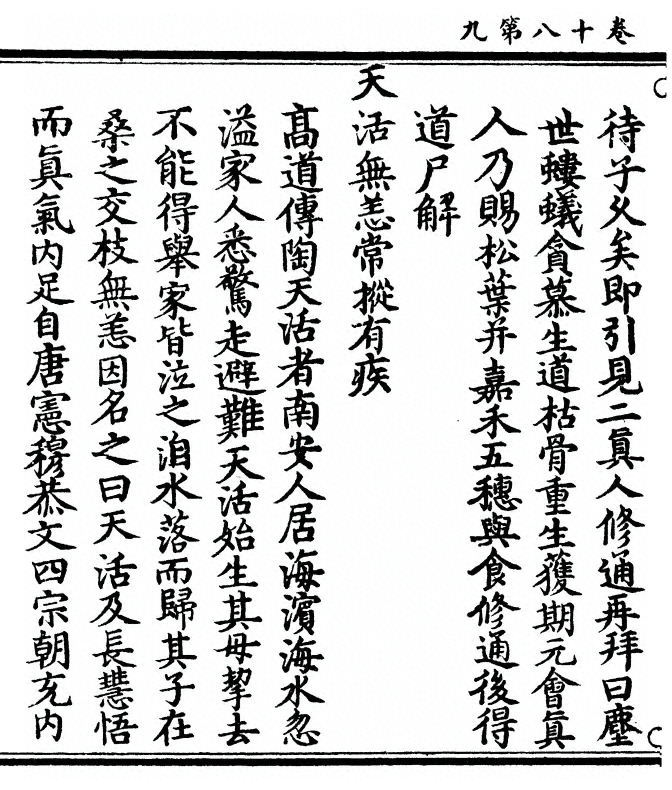 卷十八第九
待子久矣即引見二眞人修通再拜曰塵
世螻蟻貪慕生道枯骨重生獲期元會眞
人乃賜松葉并嘉禾五穗與食修通後得
道尸解
天活無恙常摐有疾
髙道傳陶天活者南安人居海濱海水忽
溢家人悉驚走避難天活始生其母挈去
不能得舉家皆泣之洎水落而歸其子在
桑之交枝無恙因名之曰天活及長慧悟
而眞氣内足自唐憲穆恭文四宗朝充内